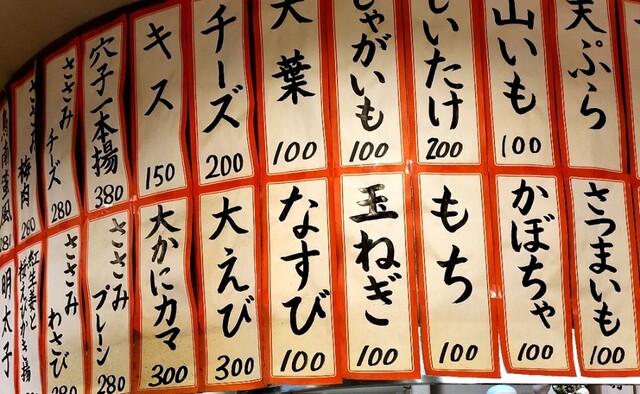 天ぷら
山いも
100
しいたけ
200
じゃがいも
100
大葉
100
チーズ
200
キス
150
穴子一本揚
380
ささみ
チーズ
280
ささみ
梅肉
280
鳥南蛮風
280
さつまいも
100
かぼちゃ
100
もち
100
玉ねぎ
100
なすび
100
大えび
300
大かにカマ
300
ささみ
プレーン
280
ささみ
わさび
280
紅生姜と
桜えびかき揚
明太子